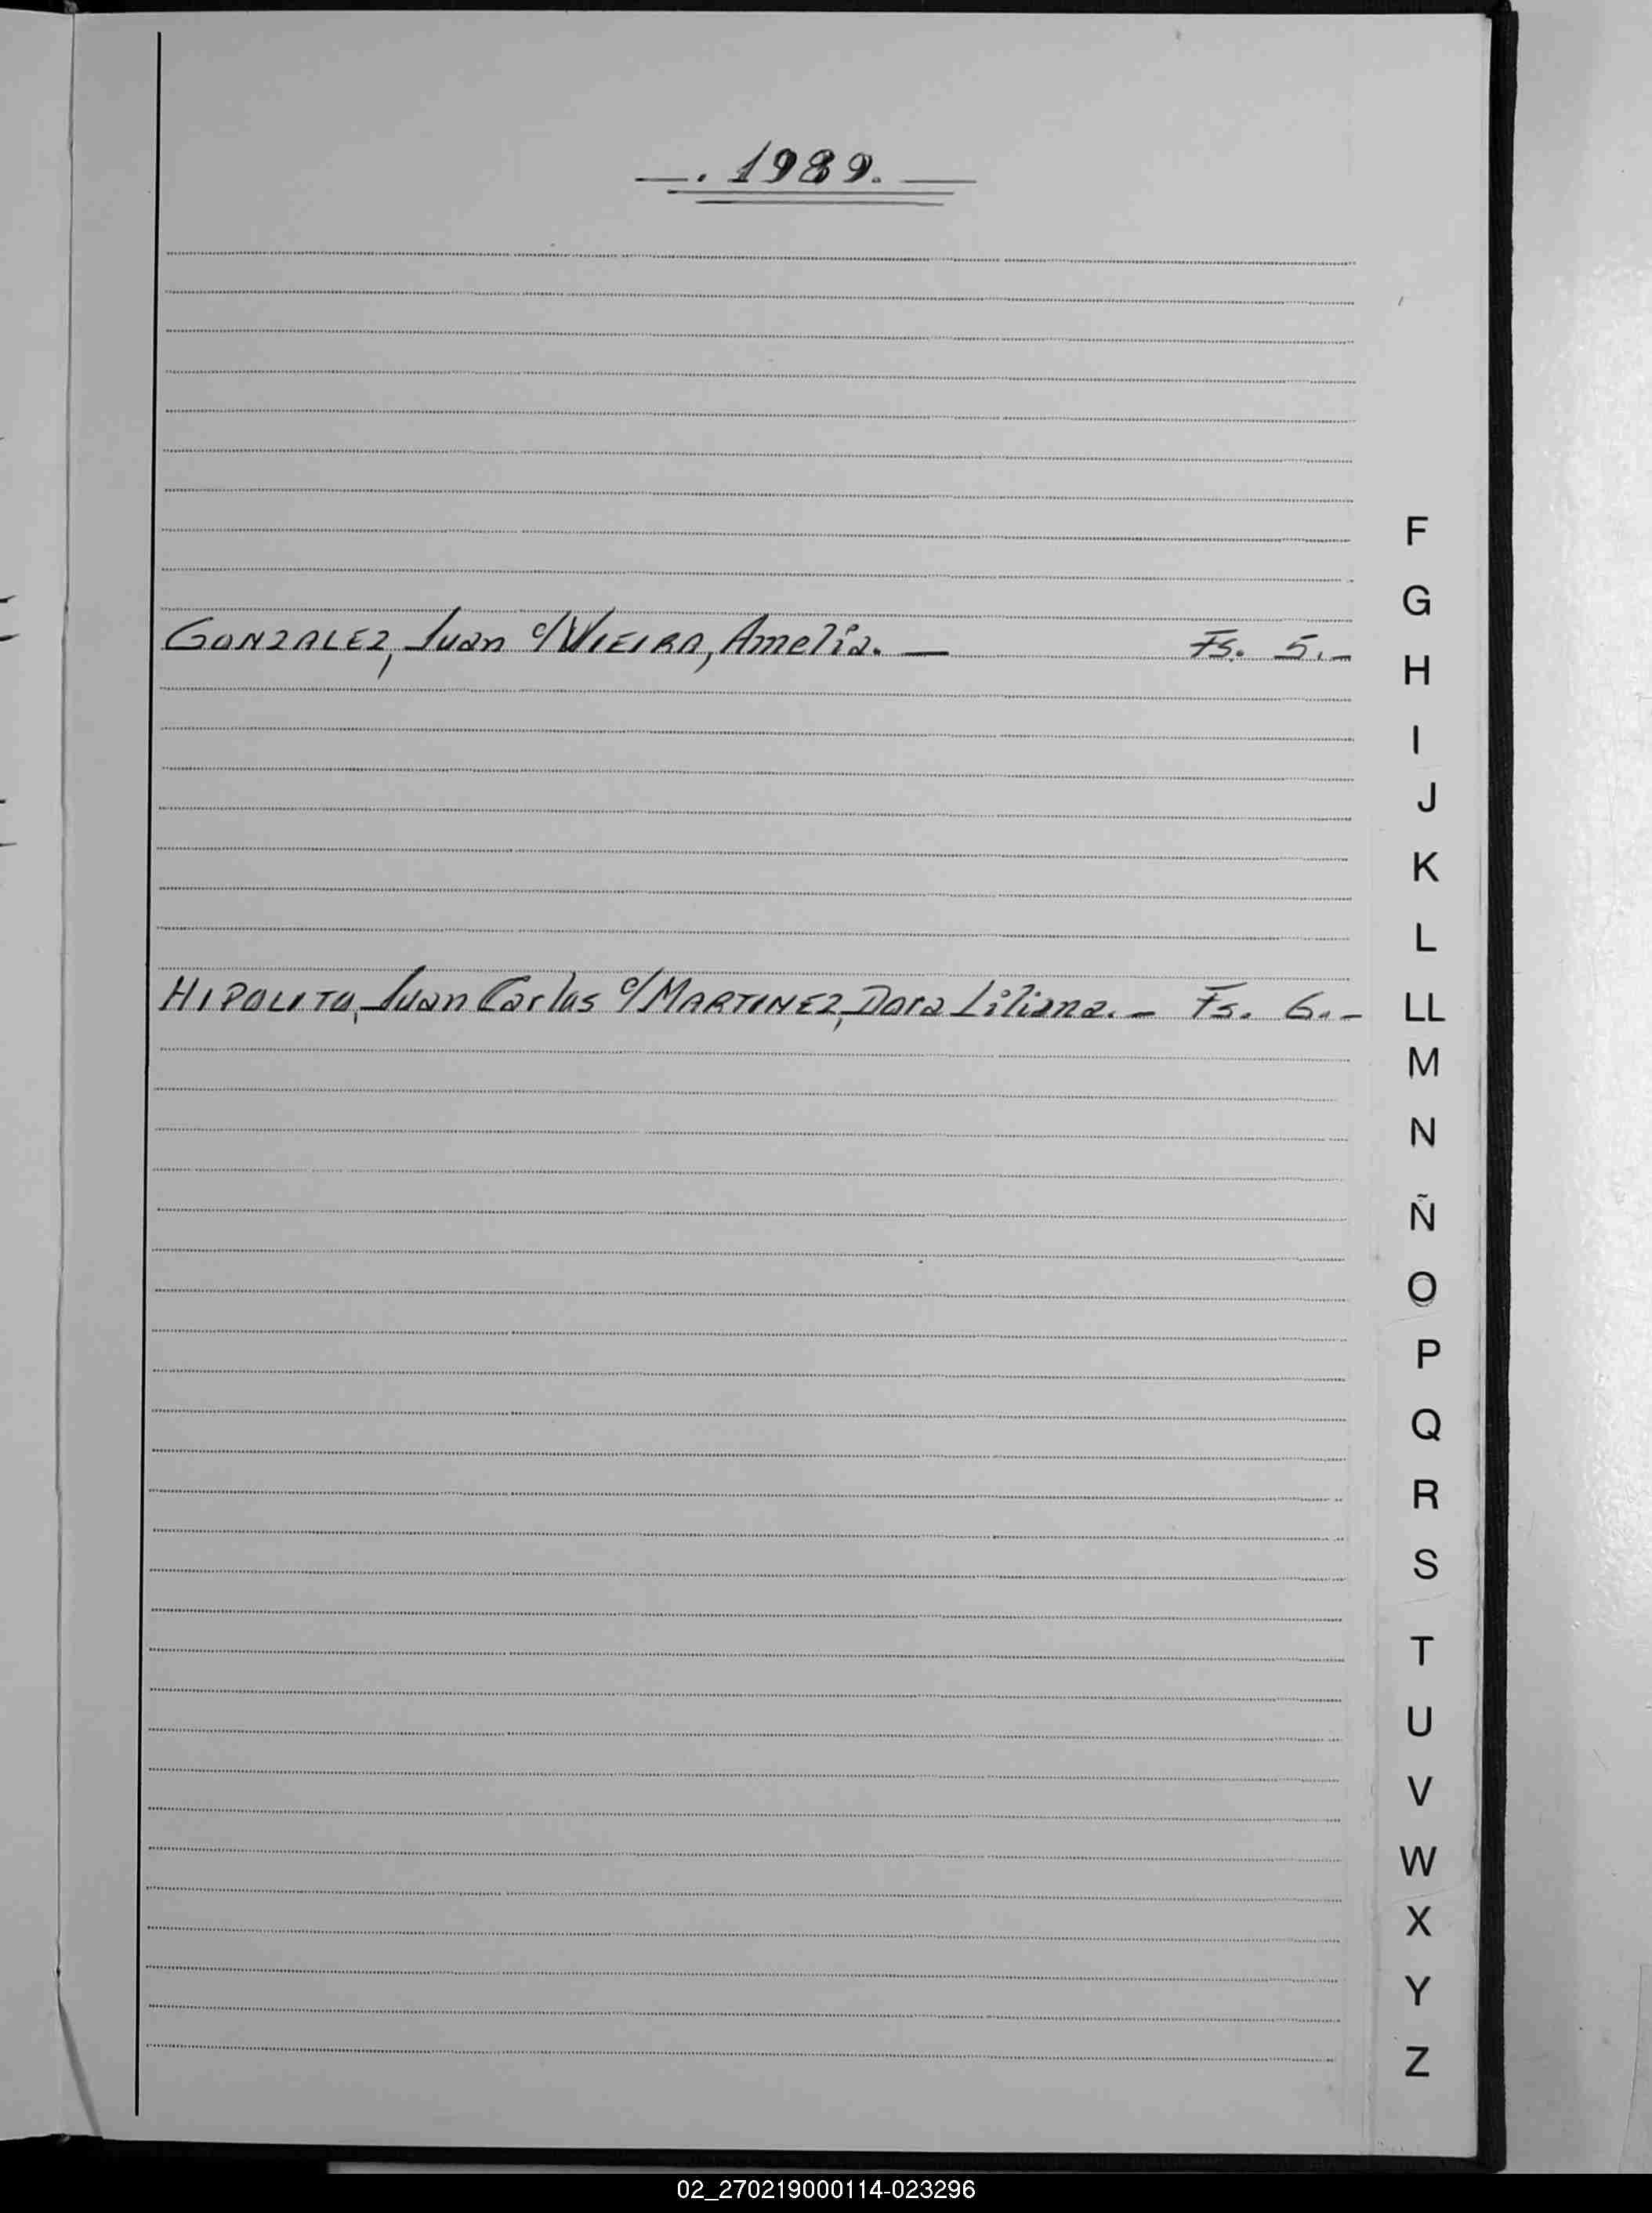 —. 1989. —
F
G
GONZALEZ, Juan c/ VIEIRA, Amelia. — Fs. 5.-
H
I
J
K
L
HIPOLITO, Juan Carlos c/ MARTINEZ, Dora Liliana. - Fs. 6.-
LL
M
N
Ñ
O
P
Q
R
S
T
U
V
W
X
Y
Z
02_270219000114-023296